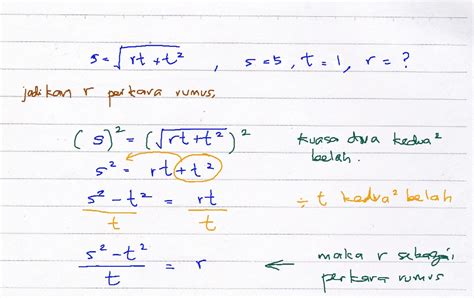 s = √(rt + t²) , s = 5 , t = 1 , r = ?
jadikan r perkara rumus,
(s)² = (√(rt + t²))² kuasa dua kedua² belah.
s² = rt + t²
s² - t² / t = rt / t ÷ t kedua² belah
s² - t² / t = r ← maka r sebagai perkara rumus